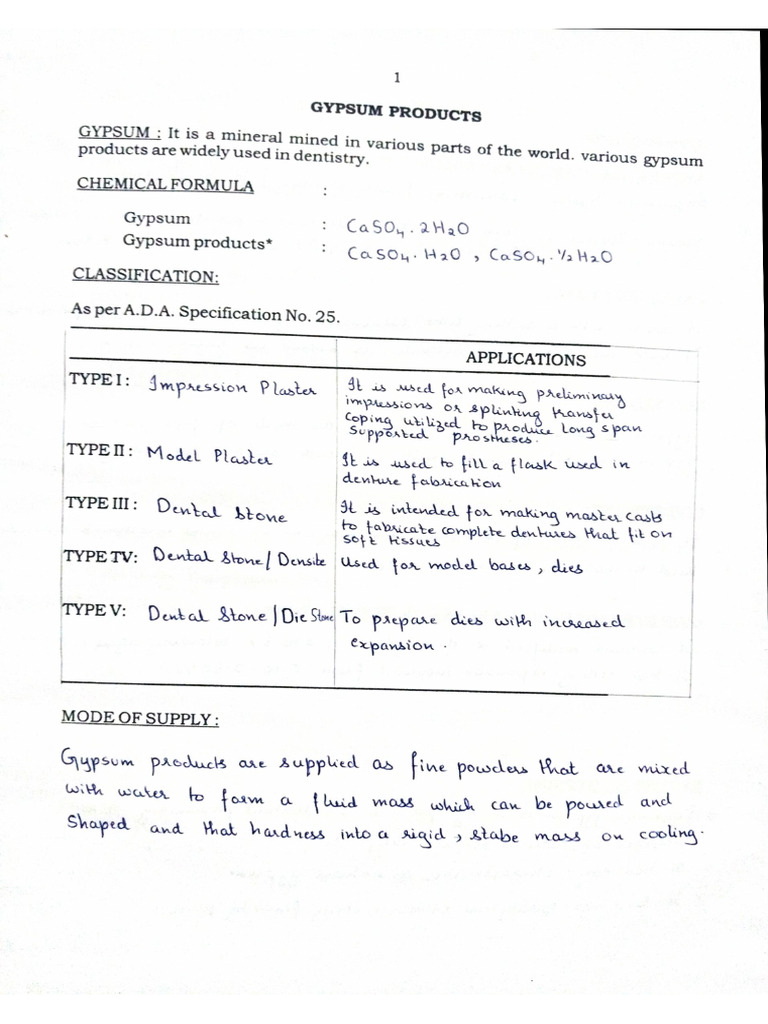 1
GYPSUM PRODUCTS
GYPSUM : It is a mineral mined in various parts of the world. various gypsum
products are widely used in dentistry.
CHEMICAL FORMULA :
Gypsum : CaSO₄ . 2H₂O
Gypsum products* : CaSO₄ . H₂O , CaSO₄ . ½ H₂O
CLASSIFICATION:
As per A.D.A. Specification No. 25.
APPLICATIONS
TYPE I : Impression Plaster
It is used for making preliminary
impressions or splinting transfer
coping utilized to produce long span
supported prostheses.
TYPE II : Model Plaster
It is used to fill a flask used in
denture fabrication
TYPE III : Dental Stone
It is intended for making master casts
to fabricate complete dentures that fit on
soft tissues
TYPE TV: Dental Stone / Densite
Used for model bases , dies
TYPE V: Dental Stone / Die Stone
To prepare dies with increased
expansion .
MODE OF SUPPLY :
Gypsum products are supplied as fine powders that are mixed
with water to form a fluid mass which can be poured and
shaped and that hardness into a rigid , stabe mass on cooling.